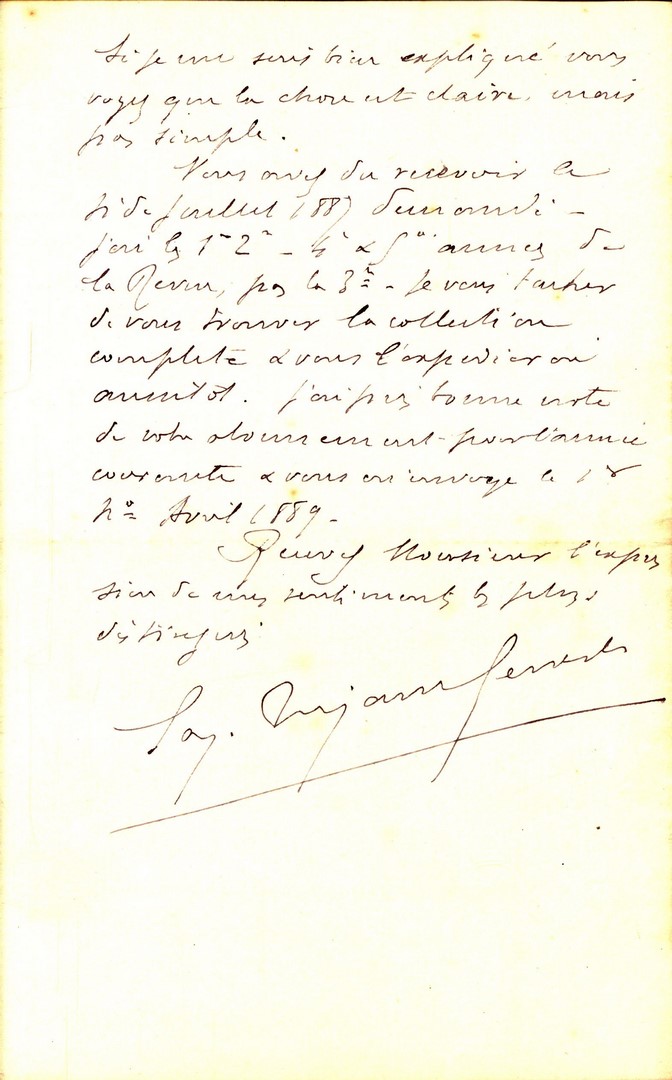 Si je me suis bien expliqué vous
voyez que la chose est claire, mais
pas simple.
Vous avez du recevoir le
No de Juillet 1887 demandé –
j'ai les 1re 2e – 4e & 5e années de
la Revue, pas la 3e – Je vais tacher
de vous trouver la collection
complète & vous l'expédierai
aussitôt. J'ai pris bonne note
de votre abonnement pour l'année
courante & vous en envoye le 1er
No Avril 1889 –
Recevez Monsieur l'expres
sion de mes sentiments les plus
distingués